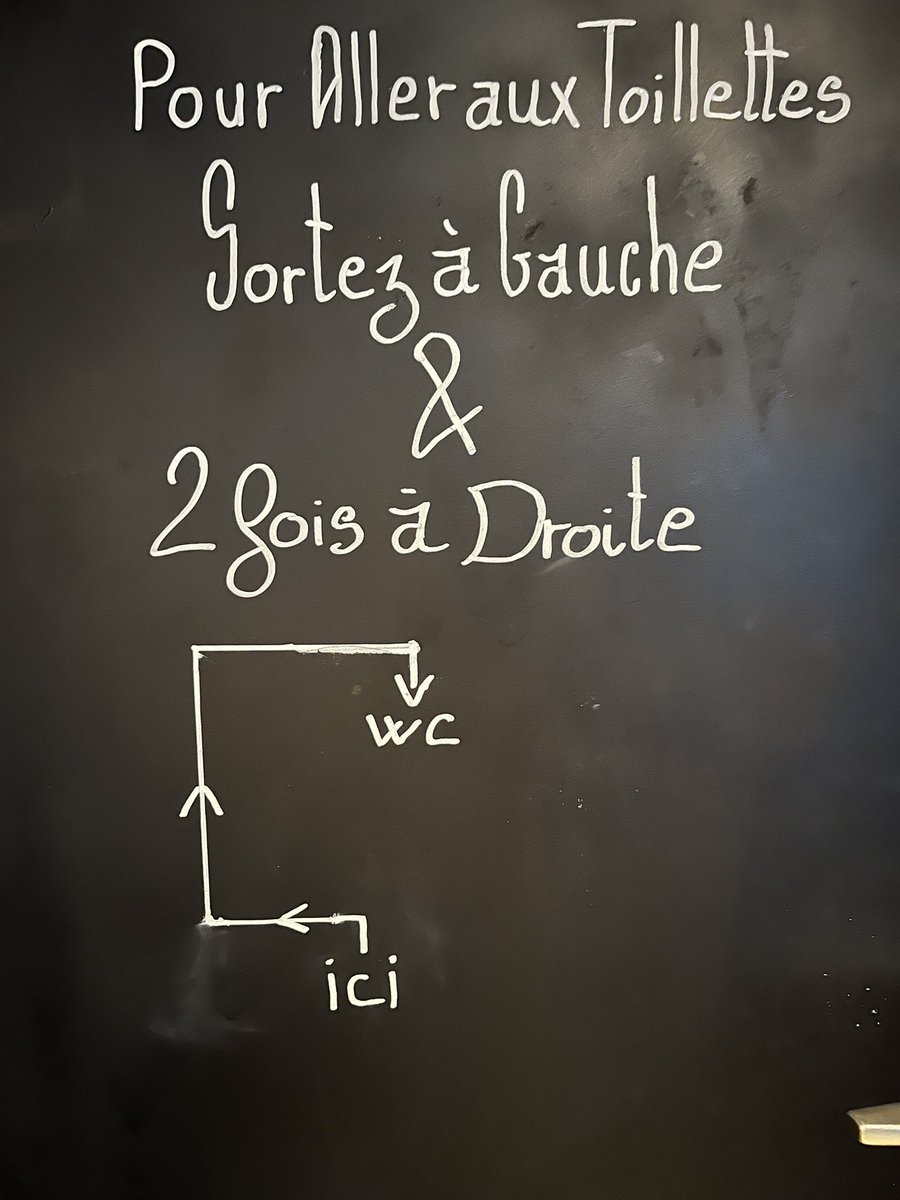 Pour Aller aux Toillettes
Sortez à Gauche
&
2 fois à Droite
WC
ici